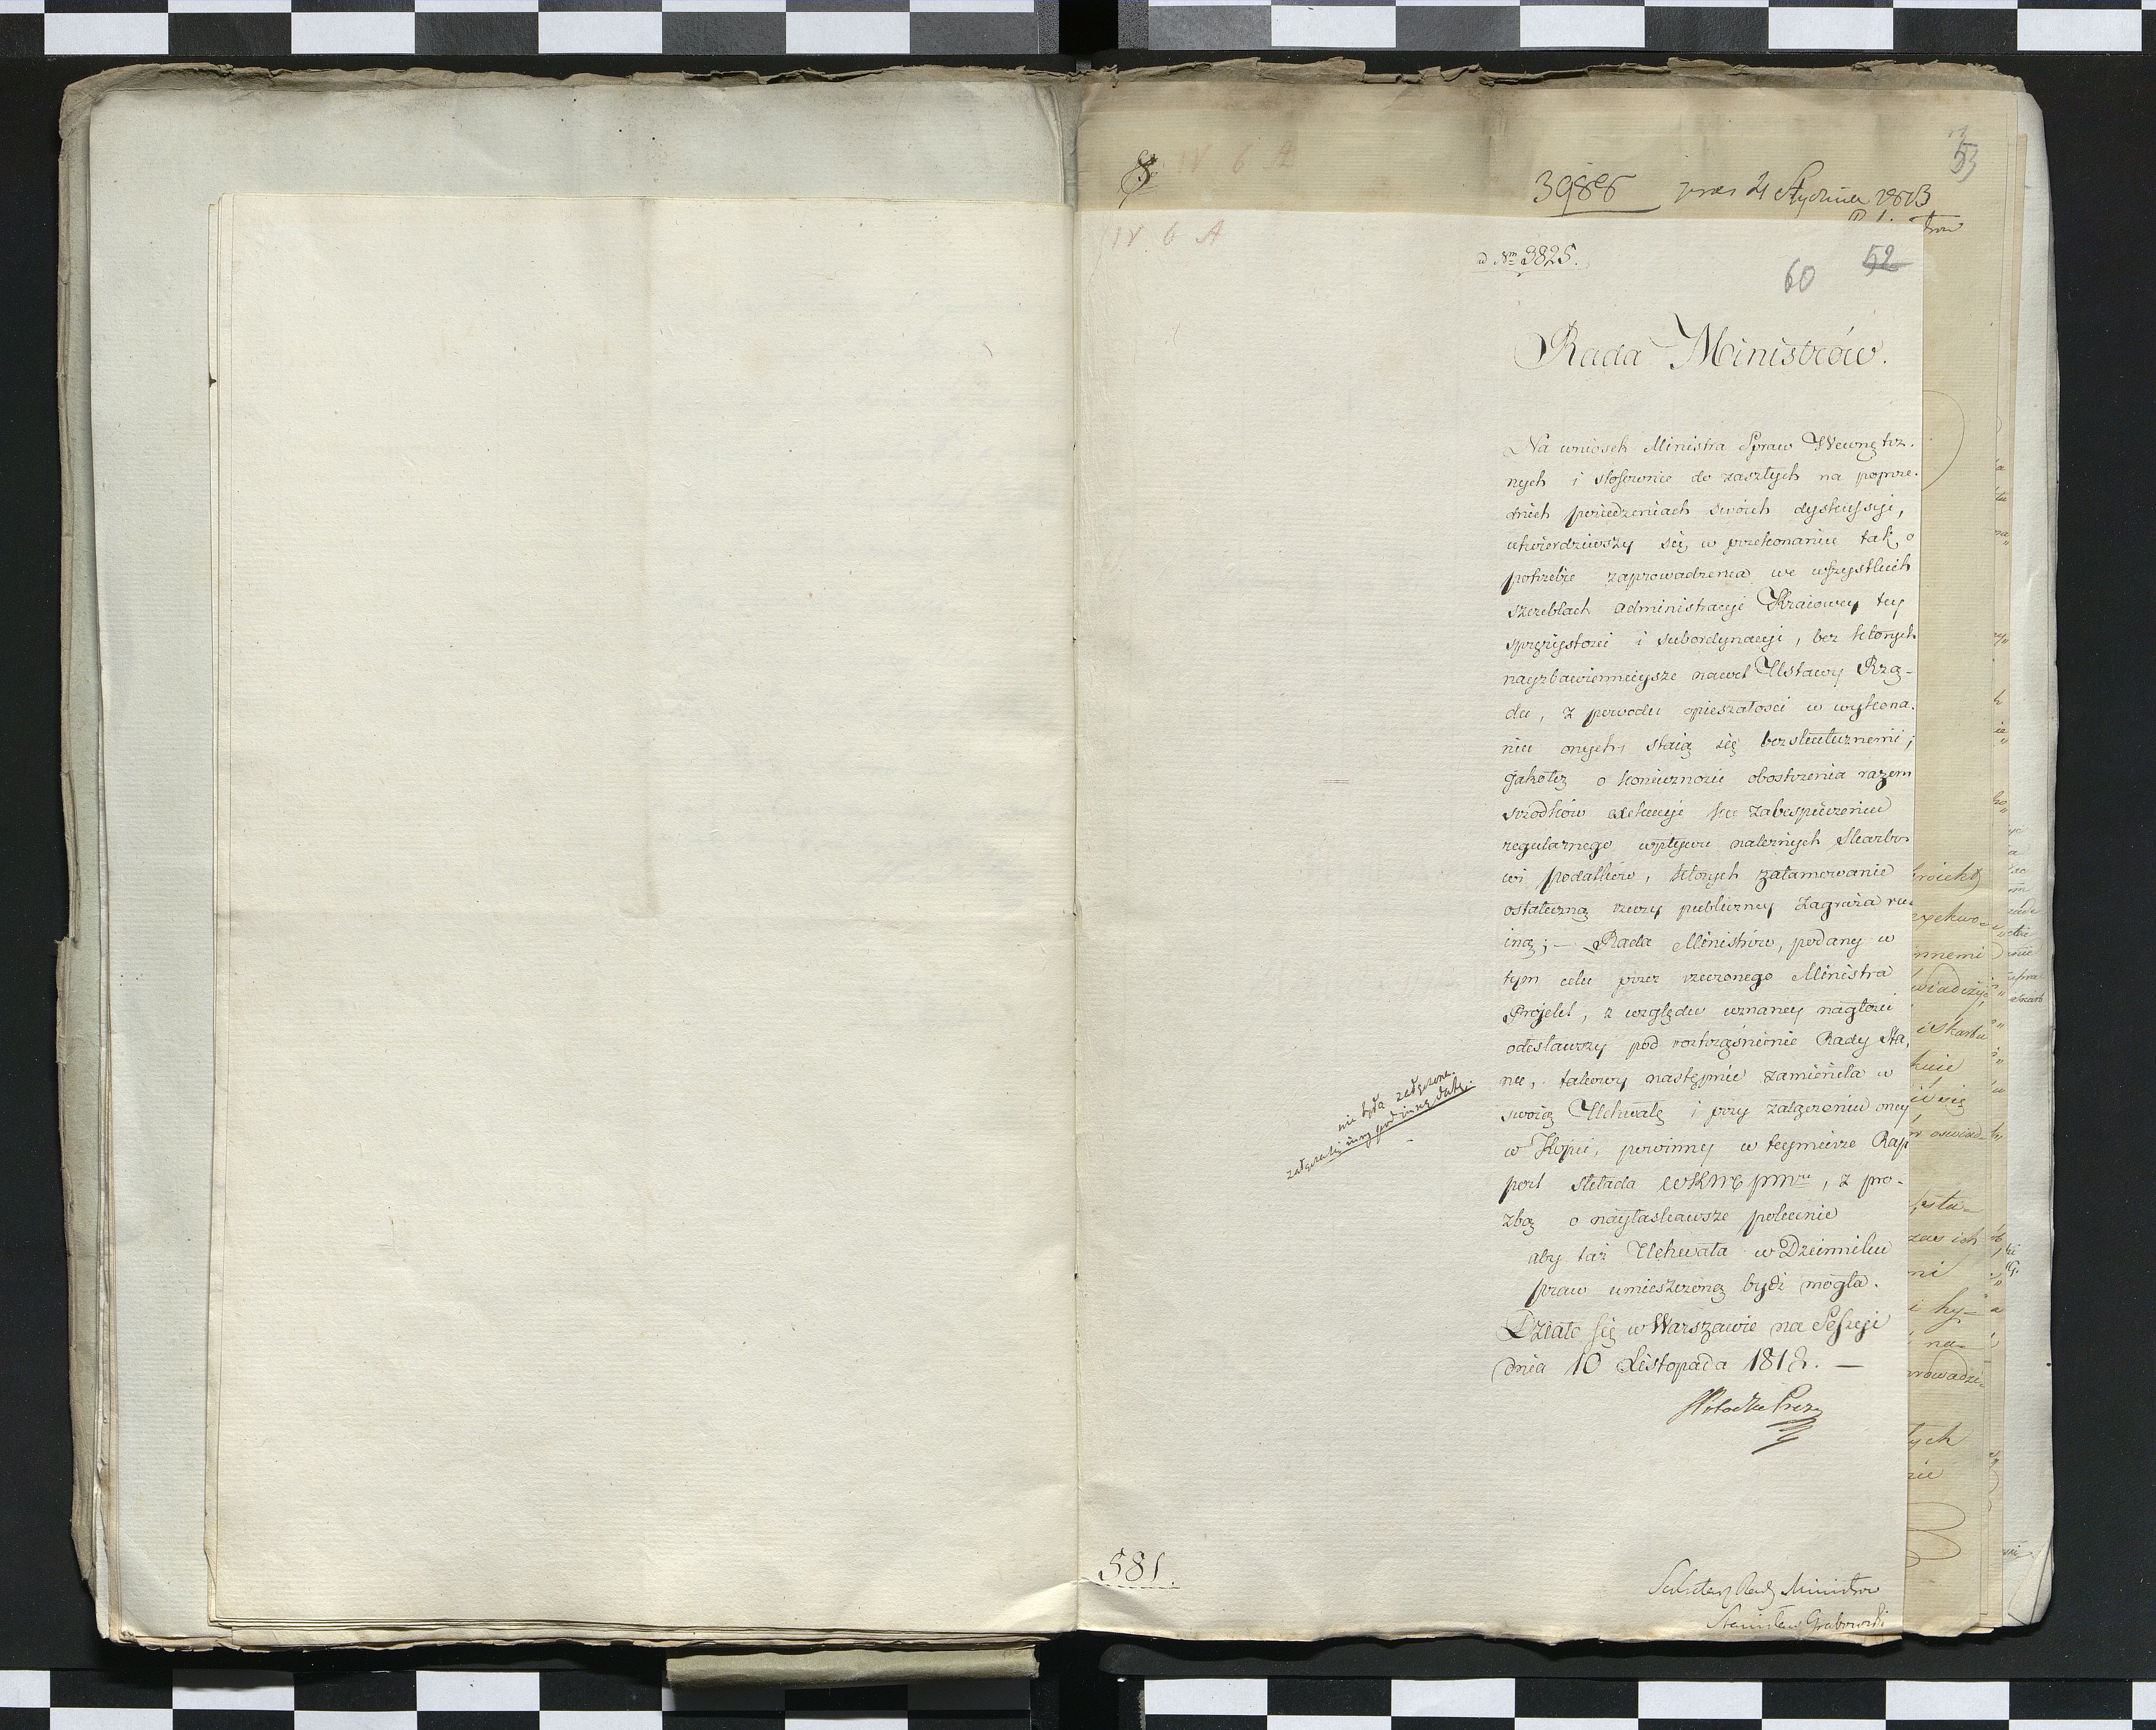 8
IV 6 A
3986 prs 21 Stycznia 1813
53
IV 6 A
ad Nm 3825.
60 52
Rada Ministrów.
Na wniosek Ministra Spraw Wewnętrz-
nych i stosownie do zaszłych na poprze-
dnich posiedzeniach swoich dyskussji,
utwierdziwszy się w przekonaniu tak o
potrzebie zaprowadzenia we wszystkich
szczeblach administracyi Kraiowey tey
sprężystości i subordynacyi, bez których
nayzbawiennieysze nawet Ustawy Rzą-
du, z powodu opieszałości w wykona-
niu onych, staią się bezskutecznemi;
jakoteż o konieczności obostrzenia razem
srzodków exekucyi ku zabespieczeniu
regularnego wpływu należnych Skarbo-
wi podatków, których zatamowanie
ostateczną rzeczy publiczney zagraża ru-
iną; — Rada Ministrów, podany w
tym celu przez rzeczonego Ministra
Projekt, z względu uznaney nagłości
odesławszy pod roztrząśnienie Rady Sta-
nu, takowy następnie zamieniła w
swoią Uchwałę i przy załączeniu oney
w Kopii, powinny w teymierze Rap
port składa WKMC PMu, z pro-
zbą o nayłaskawsze polecenie
aby taż Uchwała w Dzienniku
praw umieszczoną bydź mogła.
Działo się w Warszawie na Sessyi
dnia 10 Listopada 1812. —
Potocki Prez
nie była załączona.
załączała inny pod inną datą.
581.
Sekretarz Rady Ministrów
Stanisław Grabowski